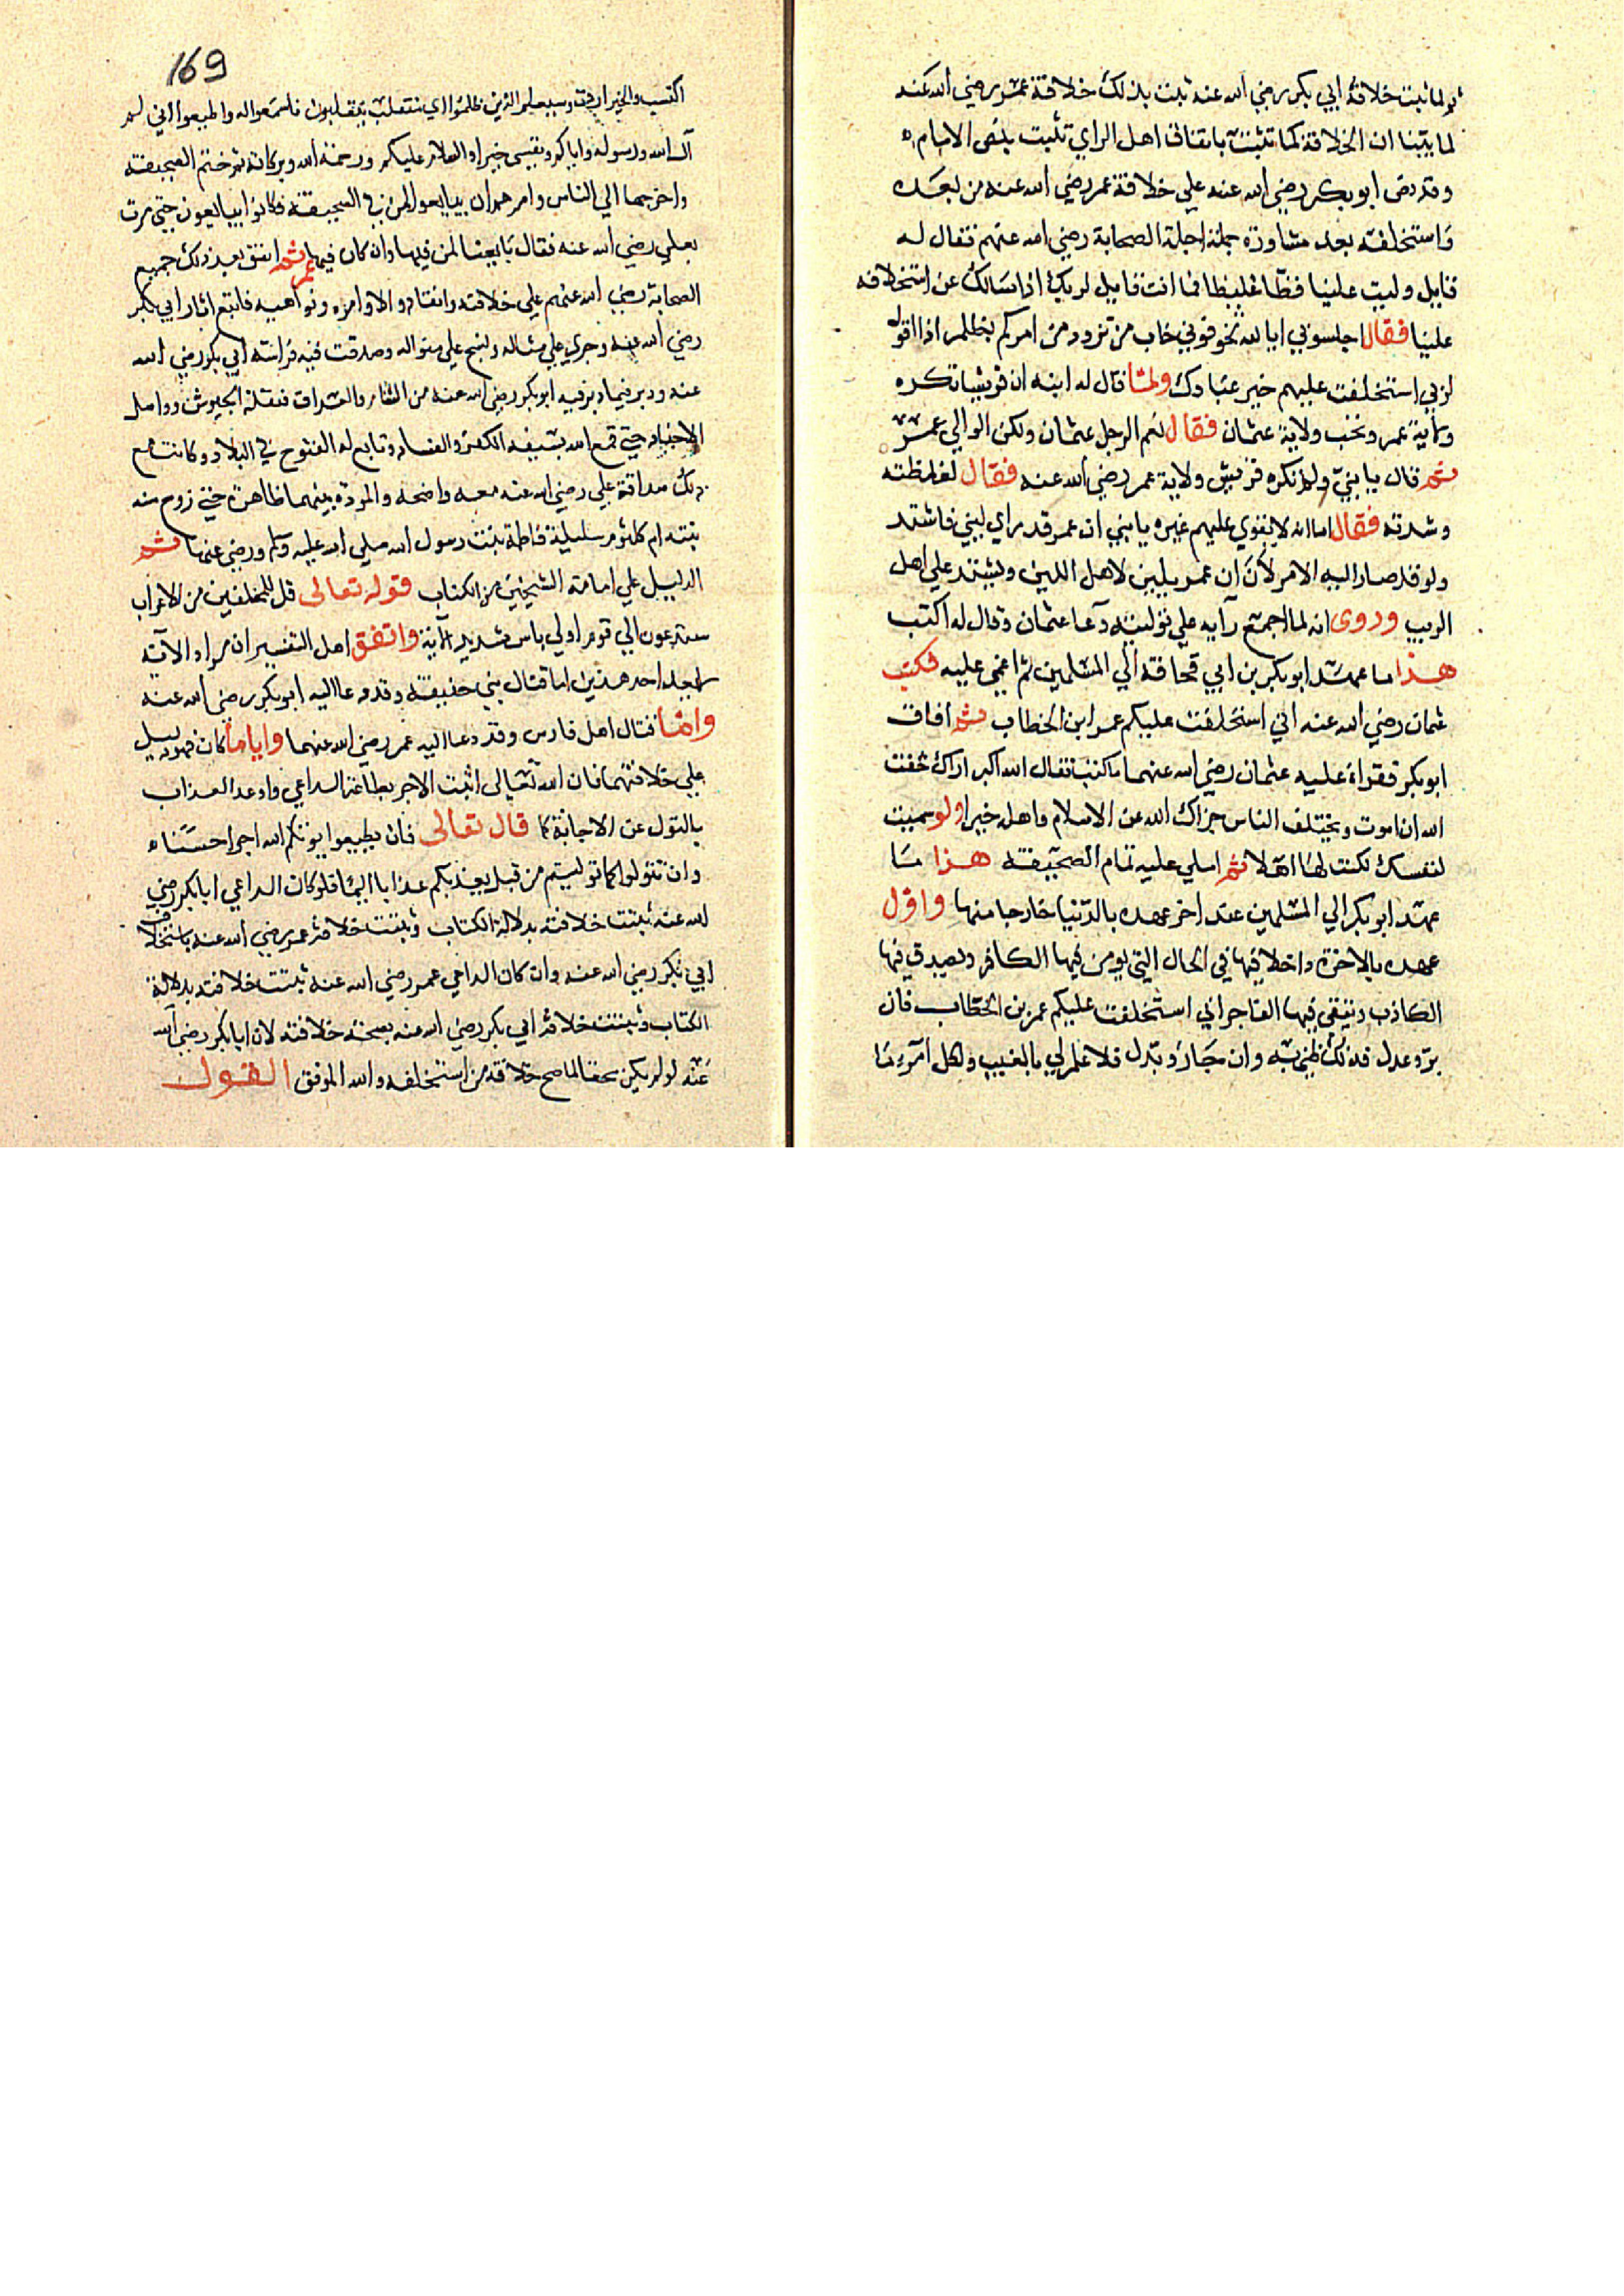 ثم لما ثبت خلافة ابي بكر رضي الله عنه ثبت بذلك خلافة عمر رضي الله عنه
لما بيّنا ان الخلافة كما تثبت باتفاق اهل الراي تثبت بنص الامام
وقد نص ابو بكر رضي الله عنه علي خلافة عمر رضي الله عنه من بعده
واستخلفه بعد مشاورة جملة اجلة الصحابة رضي الله عنهم فقال له
قايل وليت علينا فظا غليظا فما انت قايل لربك اذا سالك عن استخلافه
علينا فقال اجلسوني ابالله تخوفوني خاب من تزود من امركم بظلم اذا اقول
لربي استخلفت عليهم خير عبادك ولما قال له ابنه ان قريشا تكره
ولاية عمر وتحب ولاية عثمان فقال نعم الرجل عثمان ولكن الوالي عمر
ثم قال يا بني ولم تكره قريش ولاية عمر رضي الله عنه فقال لغلظته
وشدته فقال اما انه لا يقوي عليهم غيره يا بني ان عمر قد راي لبني فاشتد
ولو قد صار اليه الامر لان ان عمر يلين لاهل اللين ويشتد علي اهل
الريب وروي انه لما اجمع رآيه علي توليته دعا عثمان وقال له اكتب
هذا ما عهد ابو بكر بن ابي قحافة الي المسلمين ثم اغمي عليه فكتب
عثمان رضي الله عنه اني استخلفت عليكم عمر ابن الخطاب ثم افاق
ابو بكر فقراه عليه عثمان رضي الله عنهما ما كتب فقال الله اكبر اراك خفت
الله ان اموت ويختلف الناس جزاك الله عن الاسلام واهله خيرا ولو سميت
لنفسك لكنت لها اهلا ثم املي عليه تمام الصحيفة هذا ما
عهد ابو بكر الي المسلمين عند اخر عهده بالدنيا خارجا منها واول
عهده بالاخرة داخلا فيها في الحال التي يومن فيها الكافر ويصدق فيها
الكاذب ويتقي فيها الفاجر اني استخلفت عليكم عمر بن الخطاب فان
برّ وعدل فذلك ظني به وان جار وبدل فلا علم لي بالغيب ولكل امرء ما
169
اكتسب والخير اردت وسيعلم الذين ظلموا اي منقلب ينقلبون فاسمعوا له واطيعوا اني لم
آل الله ورسوله واياكم ونفسي خيرا والسلام عليكم ورحمة الله وبركاته ثم ختم الصحيفة
واخرجها الي الناس وامرهم ان يبايعوا لمن في الصحيفة فكانوا يبايعون حتي مرت
بعلي رضي الله عنه فقال بايعنا لمن فيها وان كان فيها عمر ثم اتفق بعد ذلك جميع
الصحابة رضي الله عنهم علي خلافته وانقادوا لاوامره ونواهيه فاتبع اثار ابي بكر
رضي الله عنه وجري علي مثاله ونسج علي منواله وصدقت فيه فراسته ابي بكر رضي الله
عنه ودبر فيما دبر فيه ابو بكر رضي الله عنه من الشام والعراق فنقلة الجيوش وواصل
الاجتهاد حتي قمع الله بسيفه الكفر والفساد وتابع له الفتوح في البلاد وكانت مع
ذلك صداقة علي رضي الله عنه معه واضحه والمودة بينهما ظاهرة حتي زوج منه
بنته ام كلثوم سليلة فاطمة بنت رسول الله صلي الله عليه وسلم ورضي عنها ثم
الدليل علي امامة الشيخين من الكتاب قوله تعالى قل للمخلفين من الاعراب
ستدعون الي قوم اولي باس شديد الآية واتفق اهل التفسير ان مراد الآية
احد هذين اما قتال بني حنيفة وقد دعا اليه ابو بكر رضي الله عنه
واما قتال اهل فارس وقد دعا اليه عمر رضي الله عنهما واياما كان فهو دليل
علي خلافتهما فان الله تعالى اثبت الاجر بطاعة الداعي واوعد العذاب
بالتول عن الاجابة كما قال تعالى فان تطيعوا يوتكم الله اجرا حسنا
وان تتولوا كما توليتم من قبل يعذبكم عذابا اليما فلو كان الداعي ابا بكر رضي
الله عنه ثبتت خلافته بدلالة الكتاب وثبتت خلافة عمر رضي الله عنه باستخلاف
ابي بكر رضي الله عنه وان كان الداعي عمر رضي الله عنه ثبتت خلافته بدلالة
الكتاب وثبتت خلافة ابي بكر رضي الله عنه بصحة خلافته لان ابا بكر رضي الله
عنه لو لم يكن محقا لما صح خلافة من استخلفه والله الموفق القول